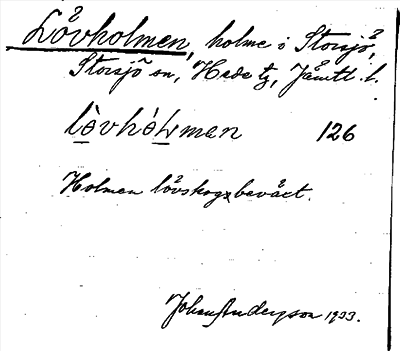 Lövholmen, holme i Storsjö,
Storsjö sn, Hede tg, Jämtl. l.
lòvhòlmen 126
Holmen lövskogsbeväxt.
Johan Anderson 1933.